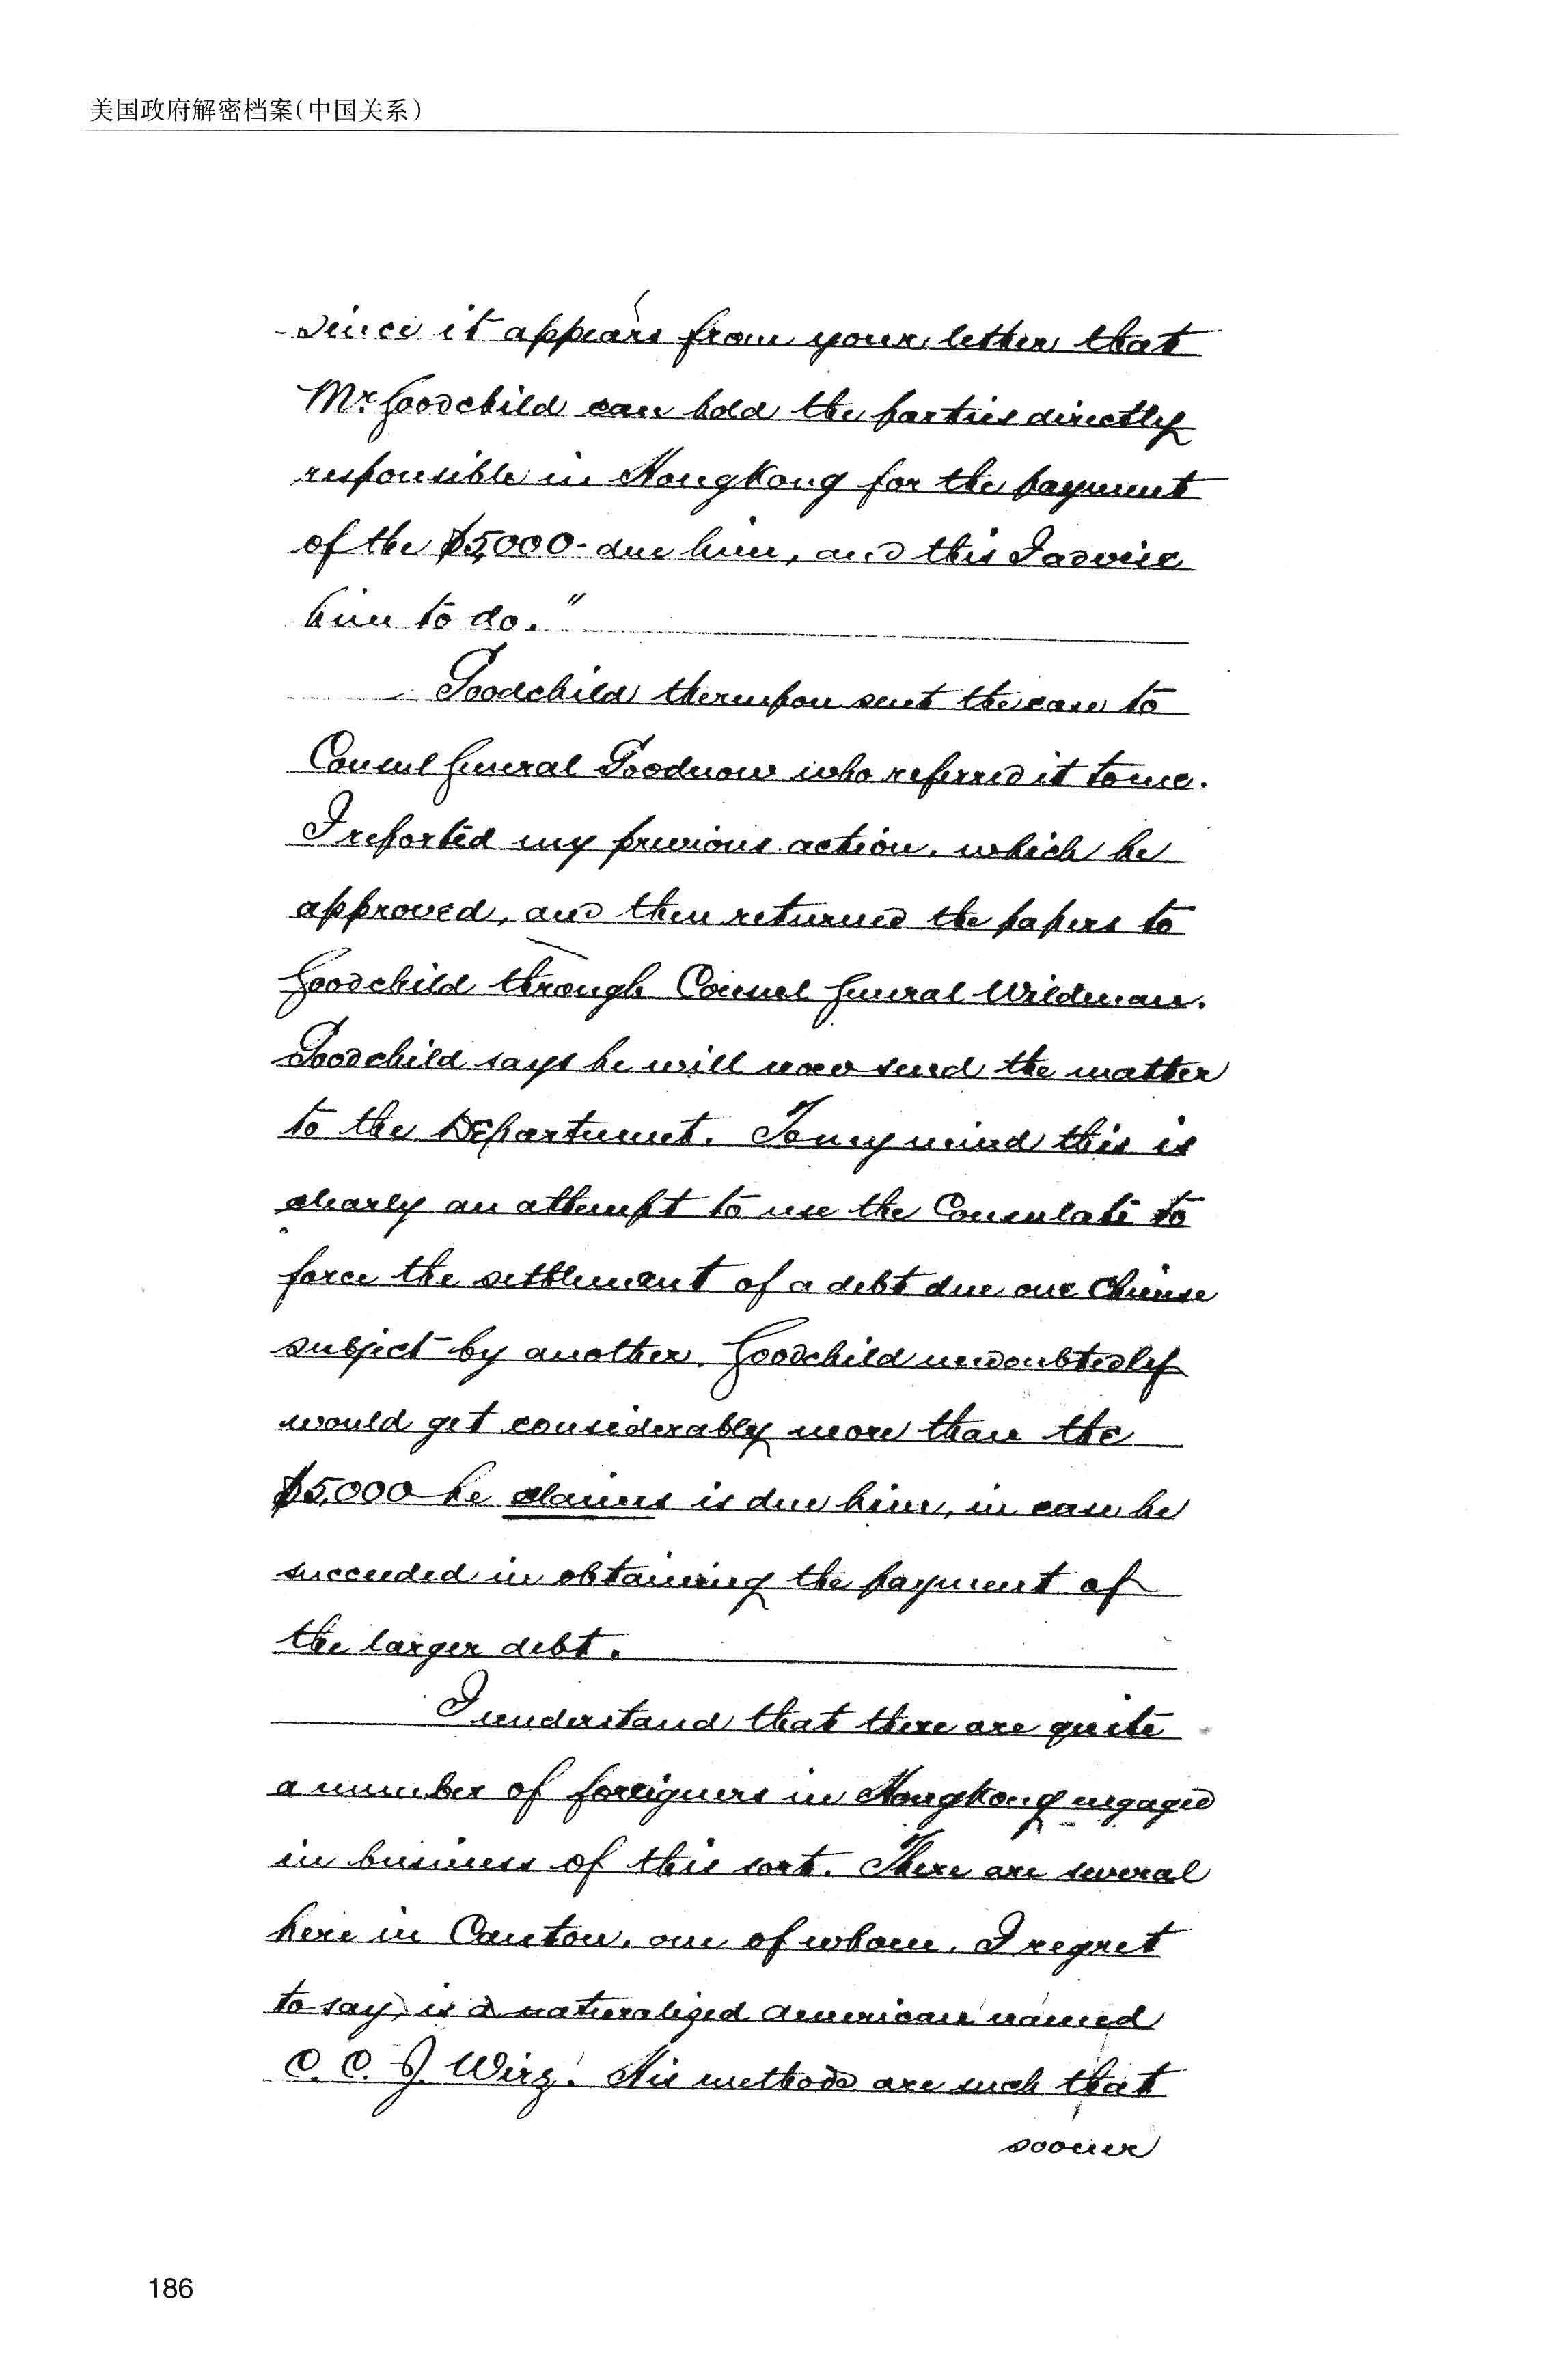 美国政府解密档案(中国关系)
since it appears from your letter that
Mr. Goodchild can hold the parties directly
responsible in HongKong for the payment
of the $5,000- due him, and this I advise
him to do."
Goodchild thereupon sent the case to
Consul General Goodnow who referred it to me.
I reported my previous action, which he
approved, and then returned the papers to
Goodchild through Consul General Wildman.
Goodchild says he will now send the matter
to the Department. To my mind this is
clearly an attempt to use the Consulate to
force the settlement of a debt due one Chinese
subject by another. Goodchild undoubtedly
would get considerably more than the
$5,000 he claims is due him, in case he
succeeded in obtaining the payment of
the larger debt.
I understand that there are quite
a number of foreigners in HongKong engaged
in business of this sort. There are several
here in Canton, one of whom, I regret
to say, is a naturalized American named
C. C. J. Wirz. His methods are such that
sooner
186